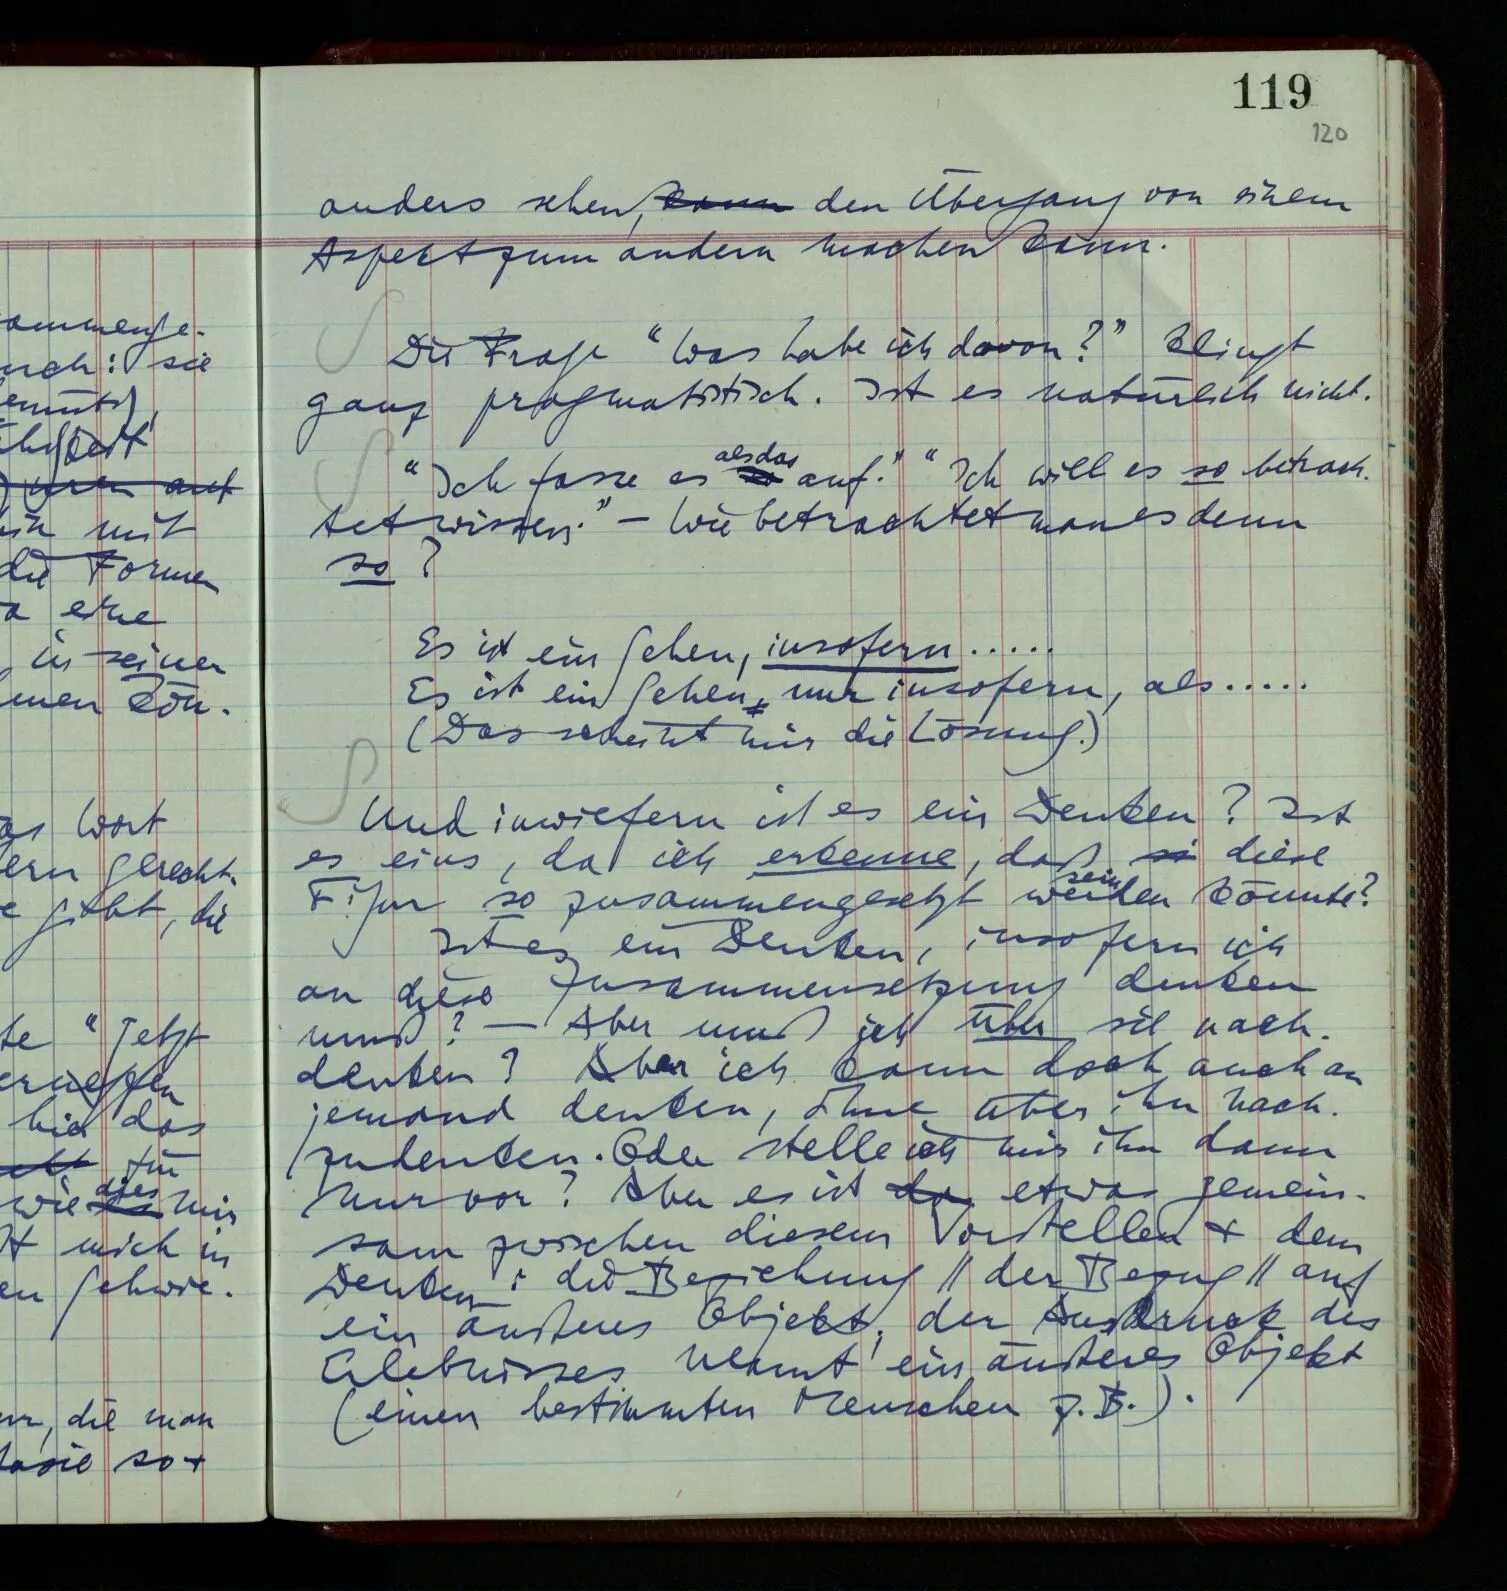 119
120
anders sehen, kann den Übergang von einem
Aspekt zum andern machen kann.
Die Frage "Was habe ich davon?" klingt
ganz pragmatistisch. Ist es natürlich nicht.
"Ich fasse es so als das auf." "Ich will es so betrach-
tet wissen." – Wie betrachtet man es denn
so?
Es ist ein Sehen, insofern .....
Es ist ein Sehen, nur insofern, als .....
(Das scheint mir die Lösung.)
Und inwiefern ist es ein Denken? Ist
es eins, da ich erkenne, daß si diese
Figur so zusammengesetzt werden sein könnte?
Ist es ein Denken, insofern ich
an diese Zusammensetzung denken
muß? – Aber muß ich über sie nach-
denken? Aber ich kann doch auch an
jemand denken, ohne über ihn nach-
zudenken. Oder stelle ich mir ihn dann
nur vor? Aber es ist da etwas gemein-
sam zwischen diesem Vorstellen + dem
Denken: die Beziehung // der Bezug // auf
ein äußeres Objekt; der Ausdruck des
Erlebnisses nennt ein äußeres Objekt
(einen bestimmten Menschen z.B.).
sie
mit
die Formen
eine
in seiner
nen kön-
Wort
gerecht-
gibt, die
"Jetzt
das
für
wie dies mir
mich in
die man
so +